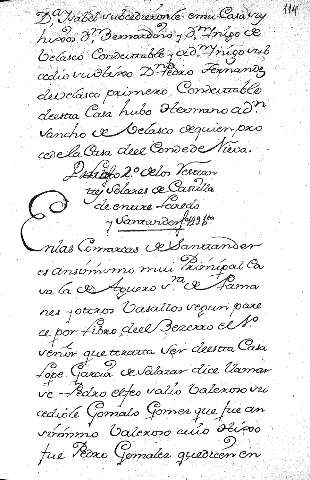 114
D.ª Ysabel subcedieronle en su Casa sus
hijos D.n Bernardino y D.n Yñigo de
Velasco Condestable y a D.n Yñigo sub
cedio su Hijo D.n Pedro Fernandez
de Velasco primero Condestable
de esta Casa hubo Hermano a D.n
Sancho de Velasco de quien pro
cede la Casa de el Conde de Nieva.
2.º de los Veteran
tes Solares de Castilla
de entre Laredo
y Santander
En las Comarcas de Santander
es ansimismo mui Prinsipal Ca
sa la de Aguero s.ra de Sama
nes y otros Vasallos segun pare
ce por Libro de el Bezerro el
venir que trata ser de esta Casa
Lope Garcia de Salazar dice llamar
se Pedro el feo vallo Valeroso su
cediole Gomalo Gomes que fue an
simismo Valeroso cuio Hijo
fue Pedro Gomales que dicen en